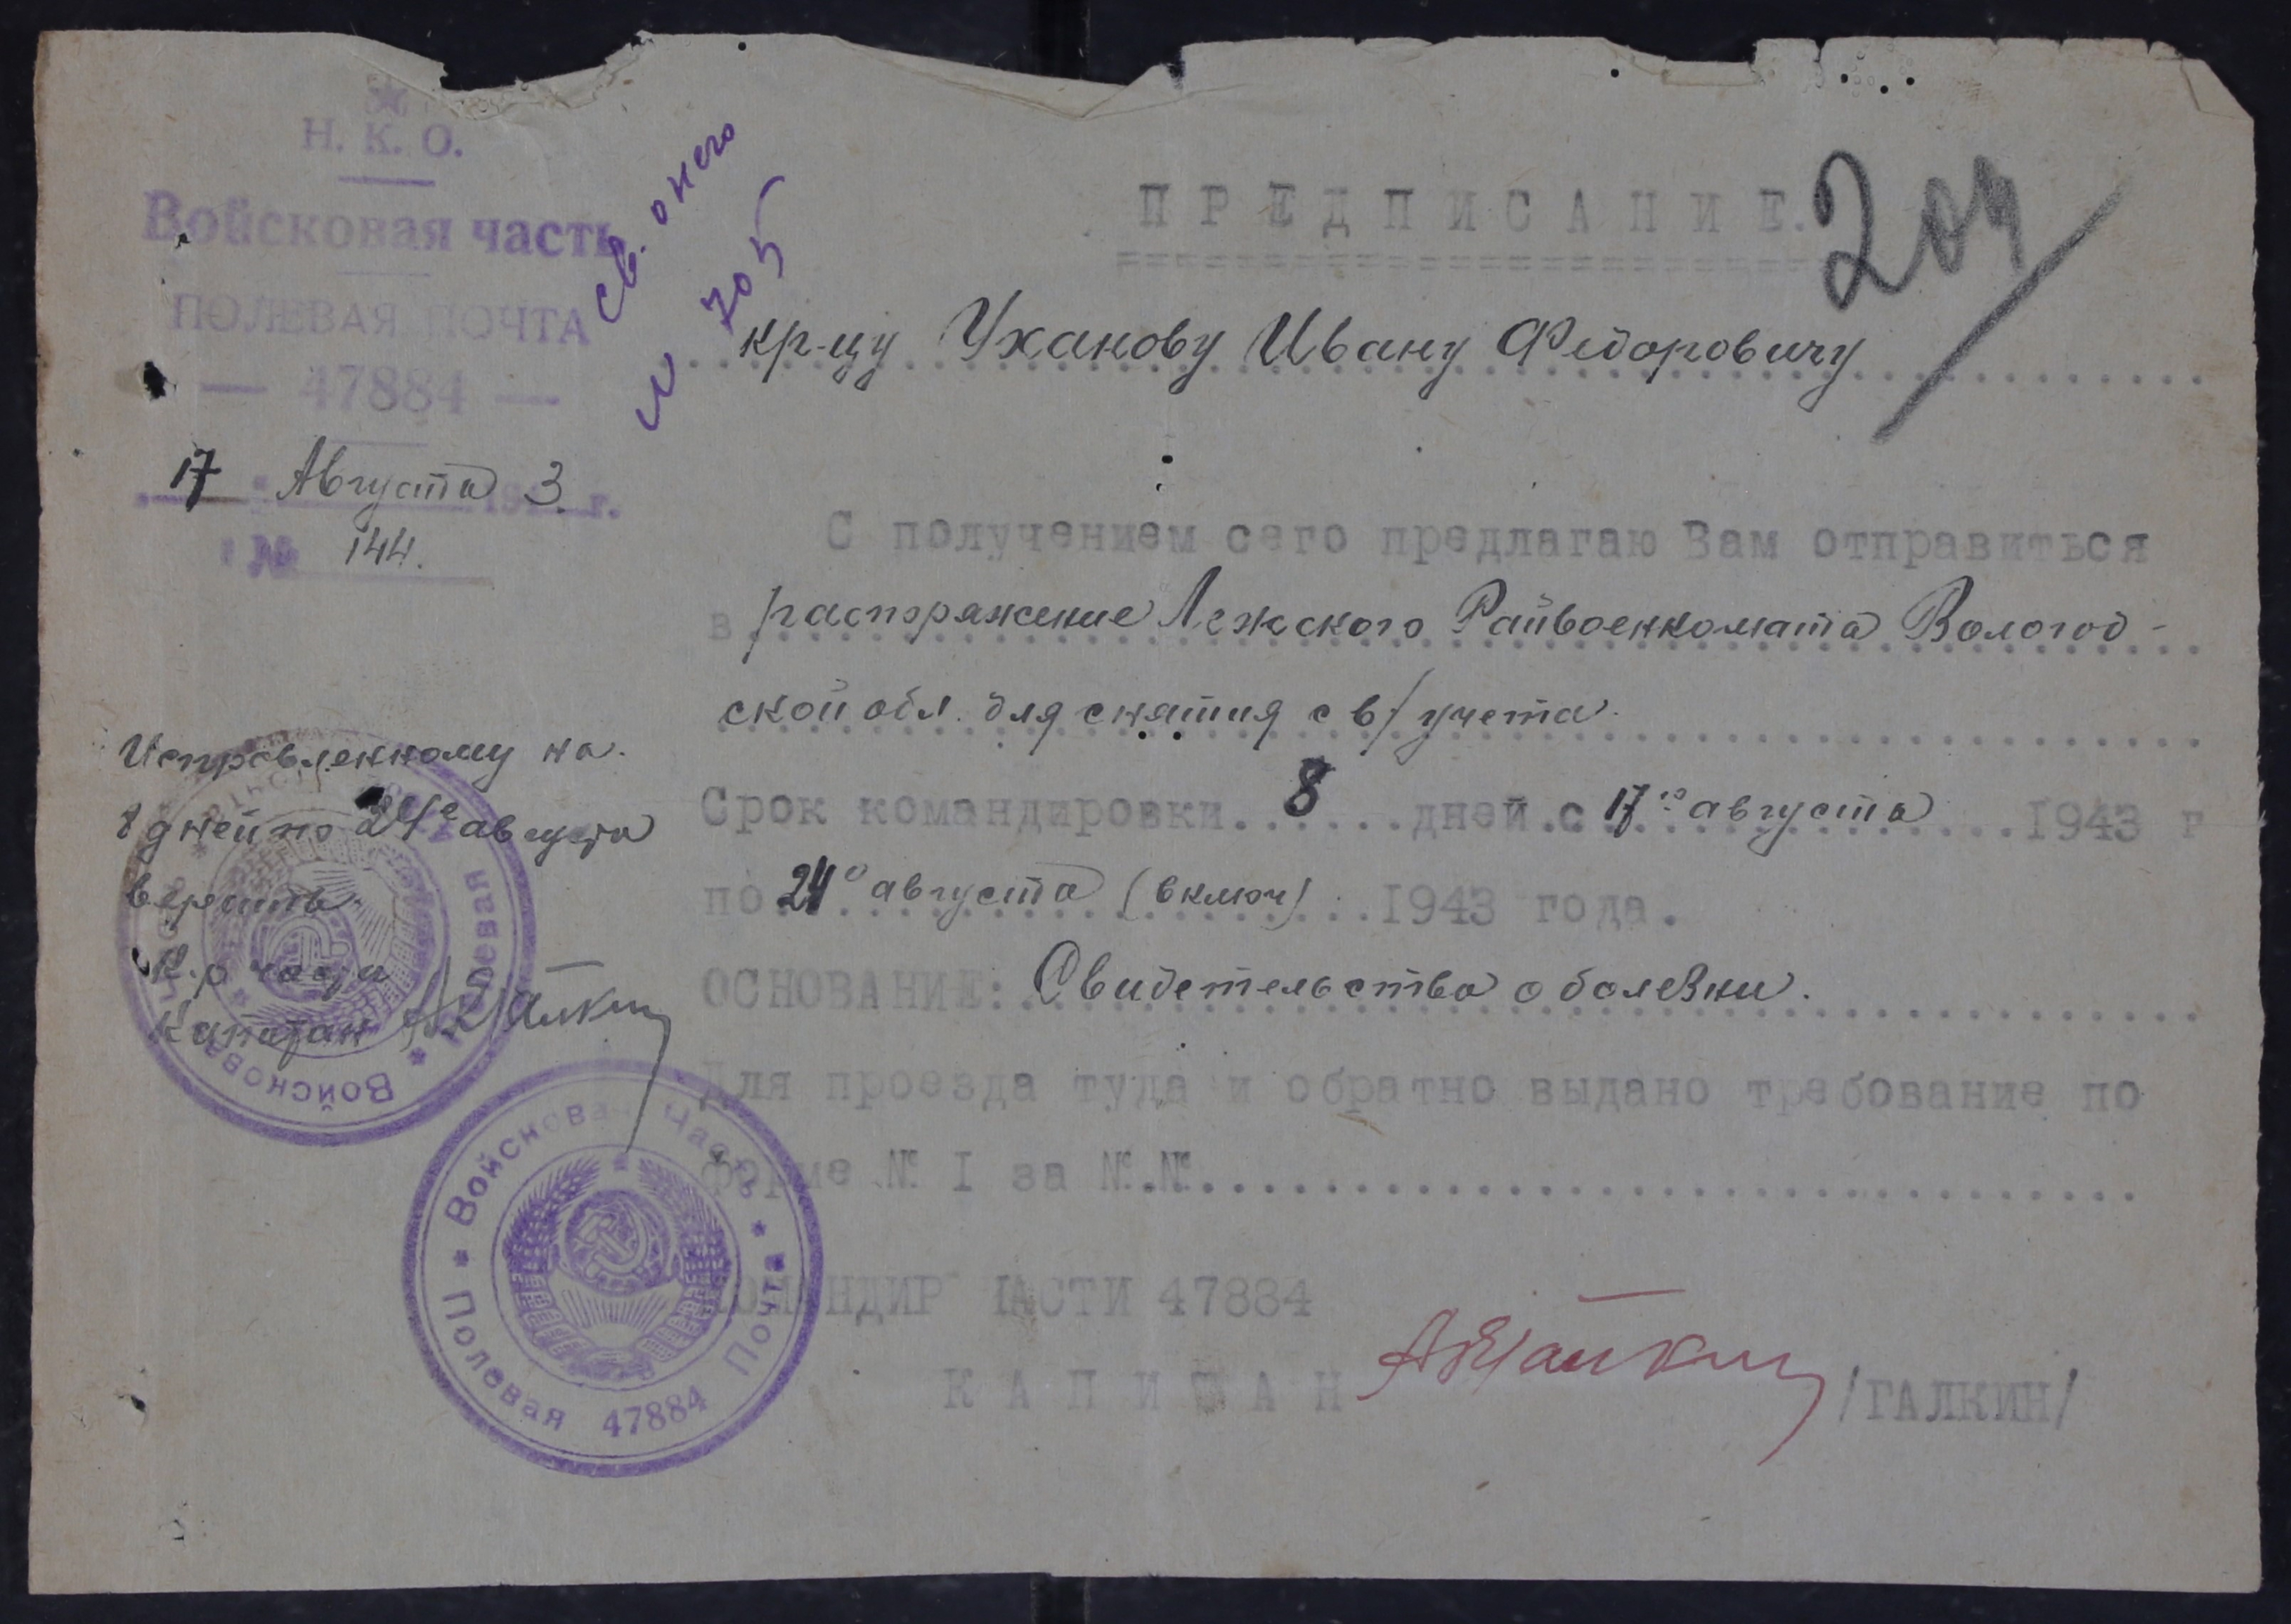 Н. К. О.
Войсковая часть
ПОЛЕВАЯ ПОЧТА
— 47884 —
17 Августа 1943 г.
№ 144.
св. о него
705
ПРЕДПИСАНИЕ.
204
кр-цу Уханову Ивану Федоровичу
С получением сего предлагаю Вам отправиться
в распоряжение Лежского Райвоенкомата Вологод-
ской обл. для снятия с в/учета.
Срок командировки 8 дней с 17го августа 1943 г
по 24о августа (включ) 1943 года.
ОСНОВАНИЕ: Свидетельство о болезни.
Для проезда туда и обратно выдано требование по
форме № I за №.№
КОМАНДИР ЧАСТИ 47884
КАПИТАН /ГАЛКИН/
Исправленному на
8 дней по 24е августа
верить
К-р части
Капитан АГалкин
Войсковая Часть * Полевая Почта * 47884
Войсковая Часть * Полевая